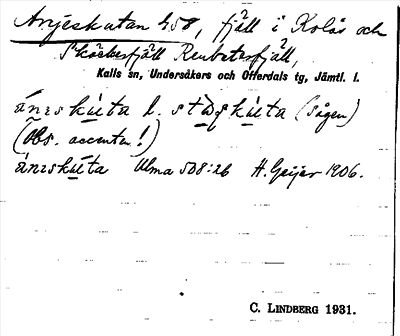 Anjeskutan 458, fjäll i Kolås och
Skäckerfjäll Renbetesfjäll,
Kalls sn, Undersåkers och Offerdals tg, Jämtl. l.
ánɪskùta l. (sägen)
(Obs. accenten!)
ánɪskúta Ulma 508:26 H. Geijer 1906.
C. LINDBERG 1931.